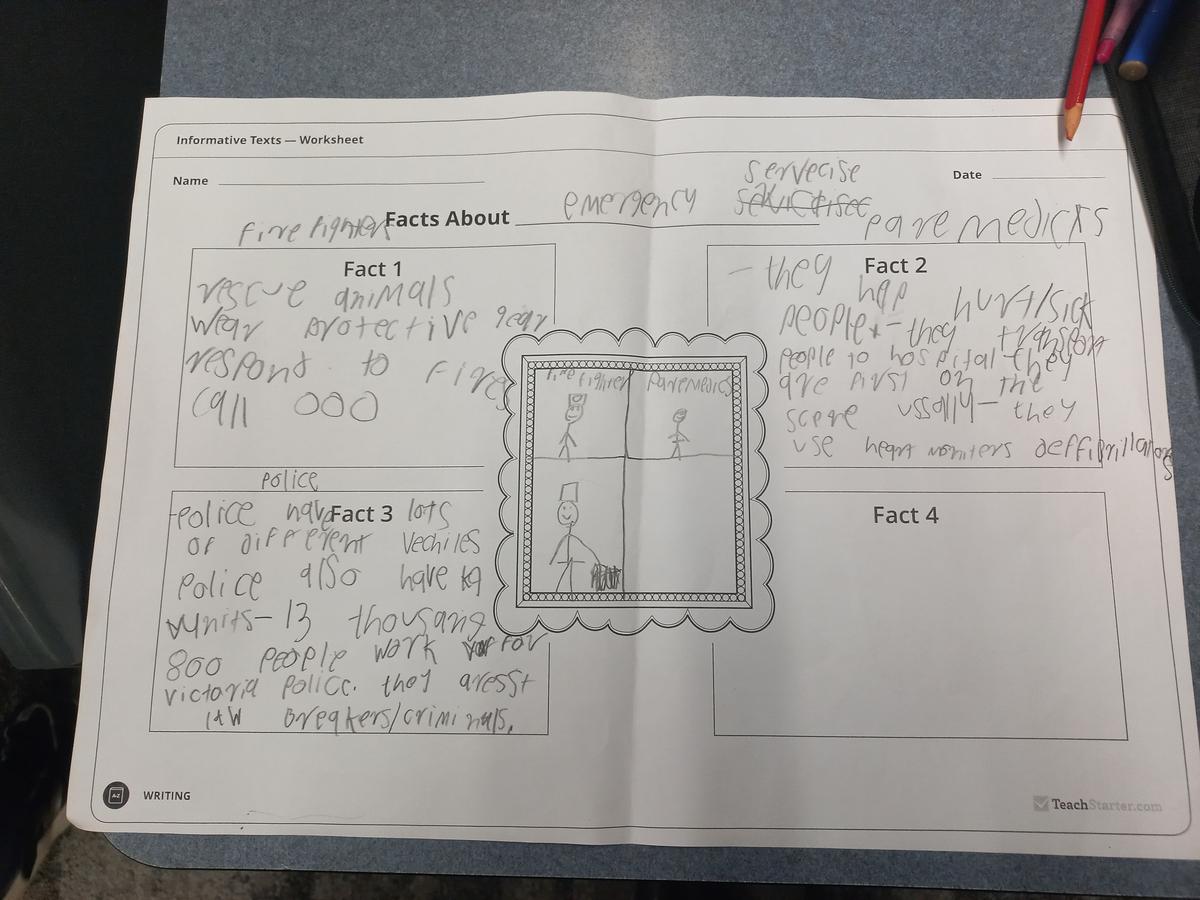 Informative Texts — Worksheet
Name
Date
Facts About emergency servecise
fire fighter
Fact 1
rescue animals
wear protective gear
respond to fires
call 000
paremedicts
Fact 2
- they hep
people - they hurt/sick transport
people to hospital they
are first on the
scene ussally - they
use heart moniters deffibrillators
fire fighter
Paremedics
police
Fact 3
-Police have lots
of different vechiles
police also have k9
units- 13 thousand
800 people work for
victoria police. they aresst
law breakers/criminals.
Fact 4
A-Z
WRITING
TeachStarter.com